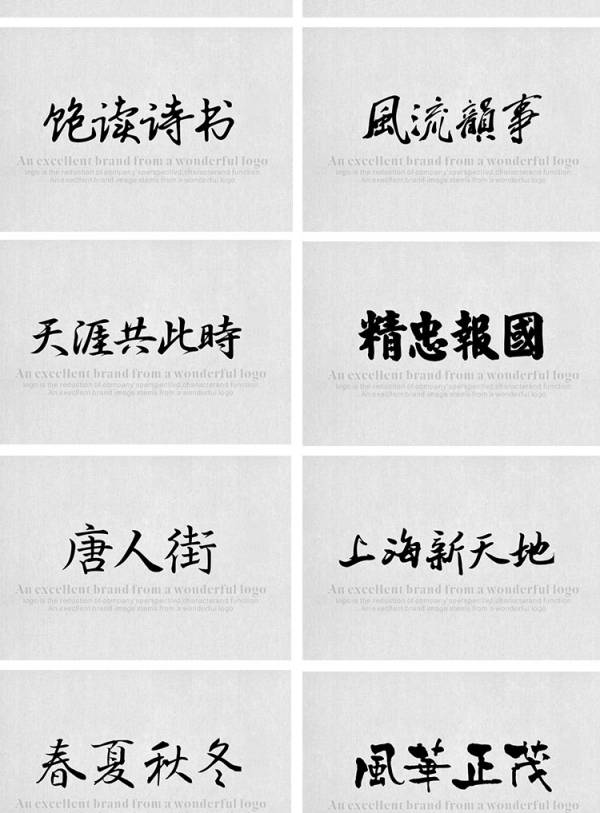 饱读诗书
An excellent brand from a wonderful logo
logo is the reduction of company'sperspectived,characterand function
An excellent brand image stems from a wonderful logo
風流韻事
An excellent brand from a wonderful logo
logo is the reduction of company'sperspectived,characterand function
An excellent brand image stems from a wonderful logo
天涯共此時
An excellent brand from a wonderful logo
logo is the reduction of company'sperspectived,characterand function
An excellent brand image stems from a wonderful logo
精忠報國
An excellent brand from a wonderful logo
logo is the reduction of company'sperspectived,characterand function
An excellent brand image stems from a wonderful logo
唐人街
An excellent brand from a wonderful logo
logo is the reduction of company'sperspectived,characterand function
An excellent brand image stems from a wonderful logo
上海新天地
An excellent brand from a wonderful logo
logo is the reduction of company'sperspectived,characterand function
An excellent brand image stems from a wonderful logo
春夏秋冬
An excellent brand from a wonderful logo
風華正茂
An excellent brand from a wonderful logo